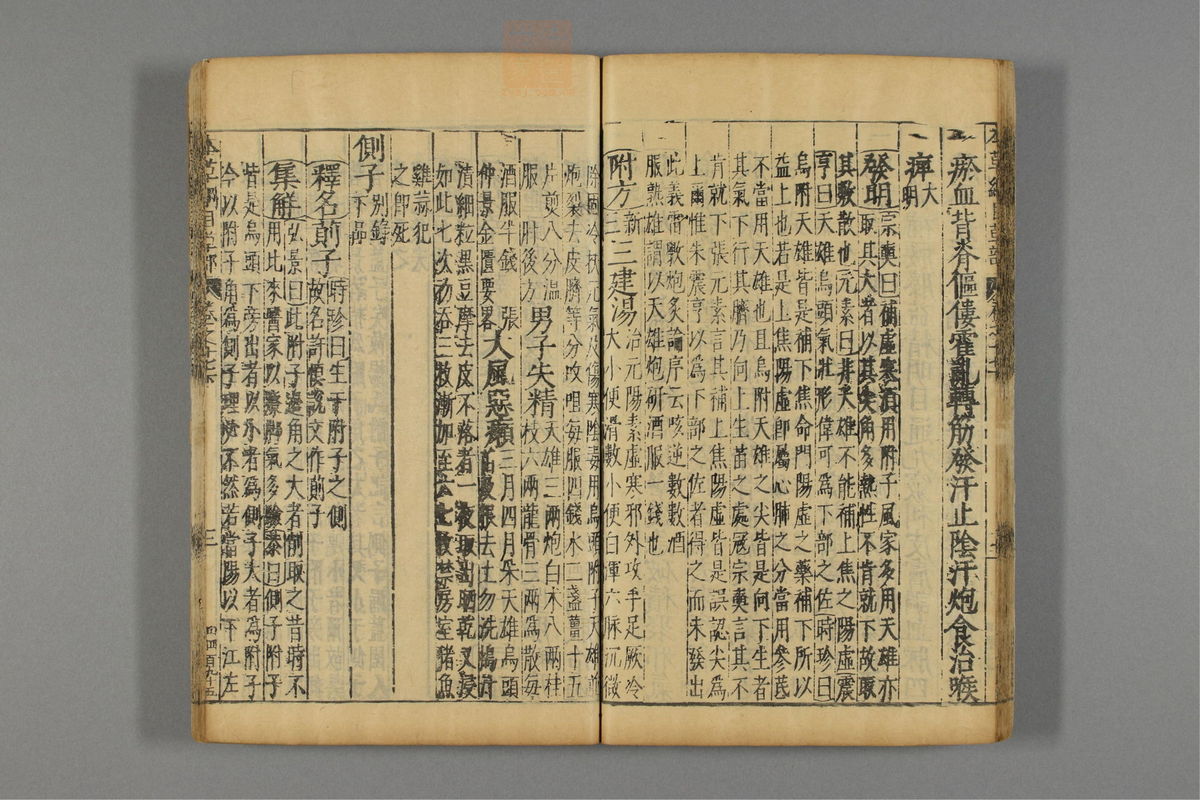 瘀血背脊傴僂霍亂轉筋發汗止陰汗炮食治喉
痺大明
發明宗奭曰補虛寒須用附子風家多用天雄亦
取其大者以其尖角多熱性不肯就下故取
其敷散也元素曰非天雄不能補上焦之陽虛震
亨曰天雄烏頭氣壯形偉可為下部之佐時珍曰
烏附天雄皆是補下焦命門陽虛之藥補下所以
益上也若是上焦陽虛即屬心肺之分當用參芪
不當用天雄也且烏附天雄之尖皆是向下生者
其氣下行其臍乃向上生苗之處寇宗奭言其不
肯就下張元素言其補上焦陽虛皆是誤認尖為
上爾惟朱震亨以為下部之佐者得之而未發出
此義雷斆炮炙論序云咳逆數數酒
服熟雄謂以天雄炮研酒服一錢也
附方新三三建湯治元陽素虛寒邪外攻手足厥冷
大小便滑數小便白渾六脉沉微
除固冷扶元氣及傷寒陰毒用烏頭附子天雄並
炮裂去皮臍等分㕮咀每服四錢水二盞薑十五
片煎八分溫
服 肘後方男子失精天雄三兩炮白术八兩桂
枝六兩龍骨三兩為散每
酒服半錢 張
仲景金匱要畧大風惡癩三月四月采天雄烏頭
苗及根去土勿洗搗汁
漬細粒黑豆摩去皮不落者一夜取出晒乾又浸
如此七次初吞三枚漸加至六七枚禁房室豬魚
雞蒜犯
之即死
側子別錄下品
釋名萴子時珍曰生于附子之側
故名許慎說文作萴子
集解弘景曰此附子邊角之大者削取之昔時不
用此來醫家以療脚氣多驗恭曰側子附子
皆是烏頭下旁出者以小者為側子大者為附子
今以附子角為側子理必不然若當陽以下江左